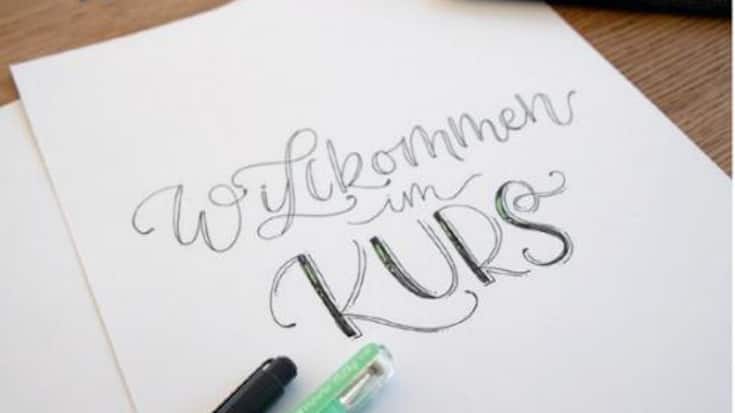 Willkommen
im
KURS